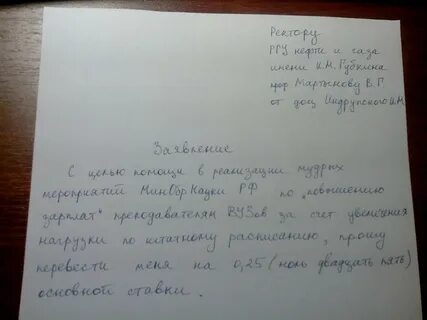 Ректору
РГУ нефти и газа
имени И.М. Губкина
проф Мартынову В.Г.
от доц Индрупского И.М.
Заявление
С целью помощи в реализации мудрых
мероприятий МинОбрНауки РФ по "повышению
зарплат" преподавателям ВУЗов за счет увеличения
нагрузки по штатному расписанию, прошу
перевести меня на 0,25 (ноль двадцать пять)
основной ставки.